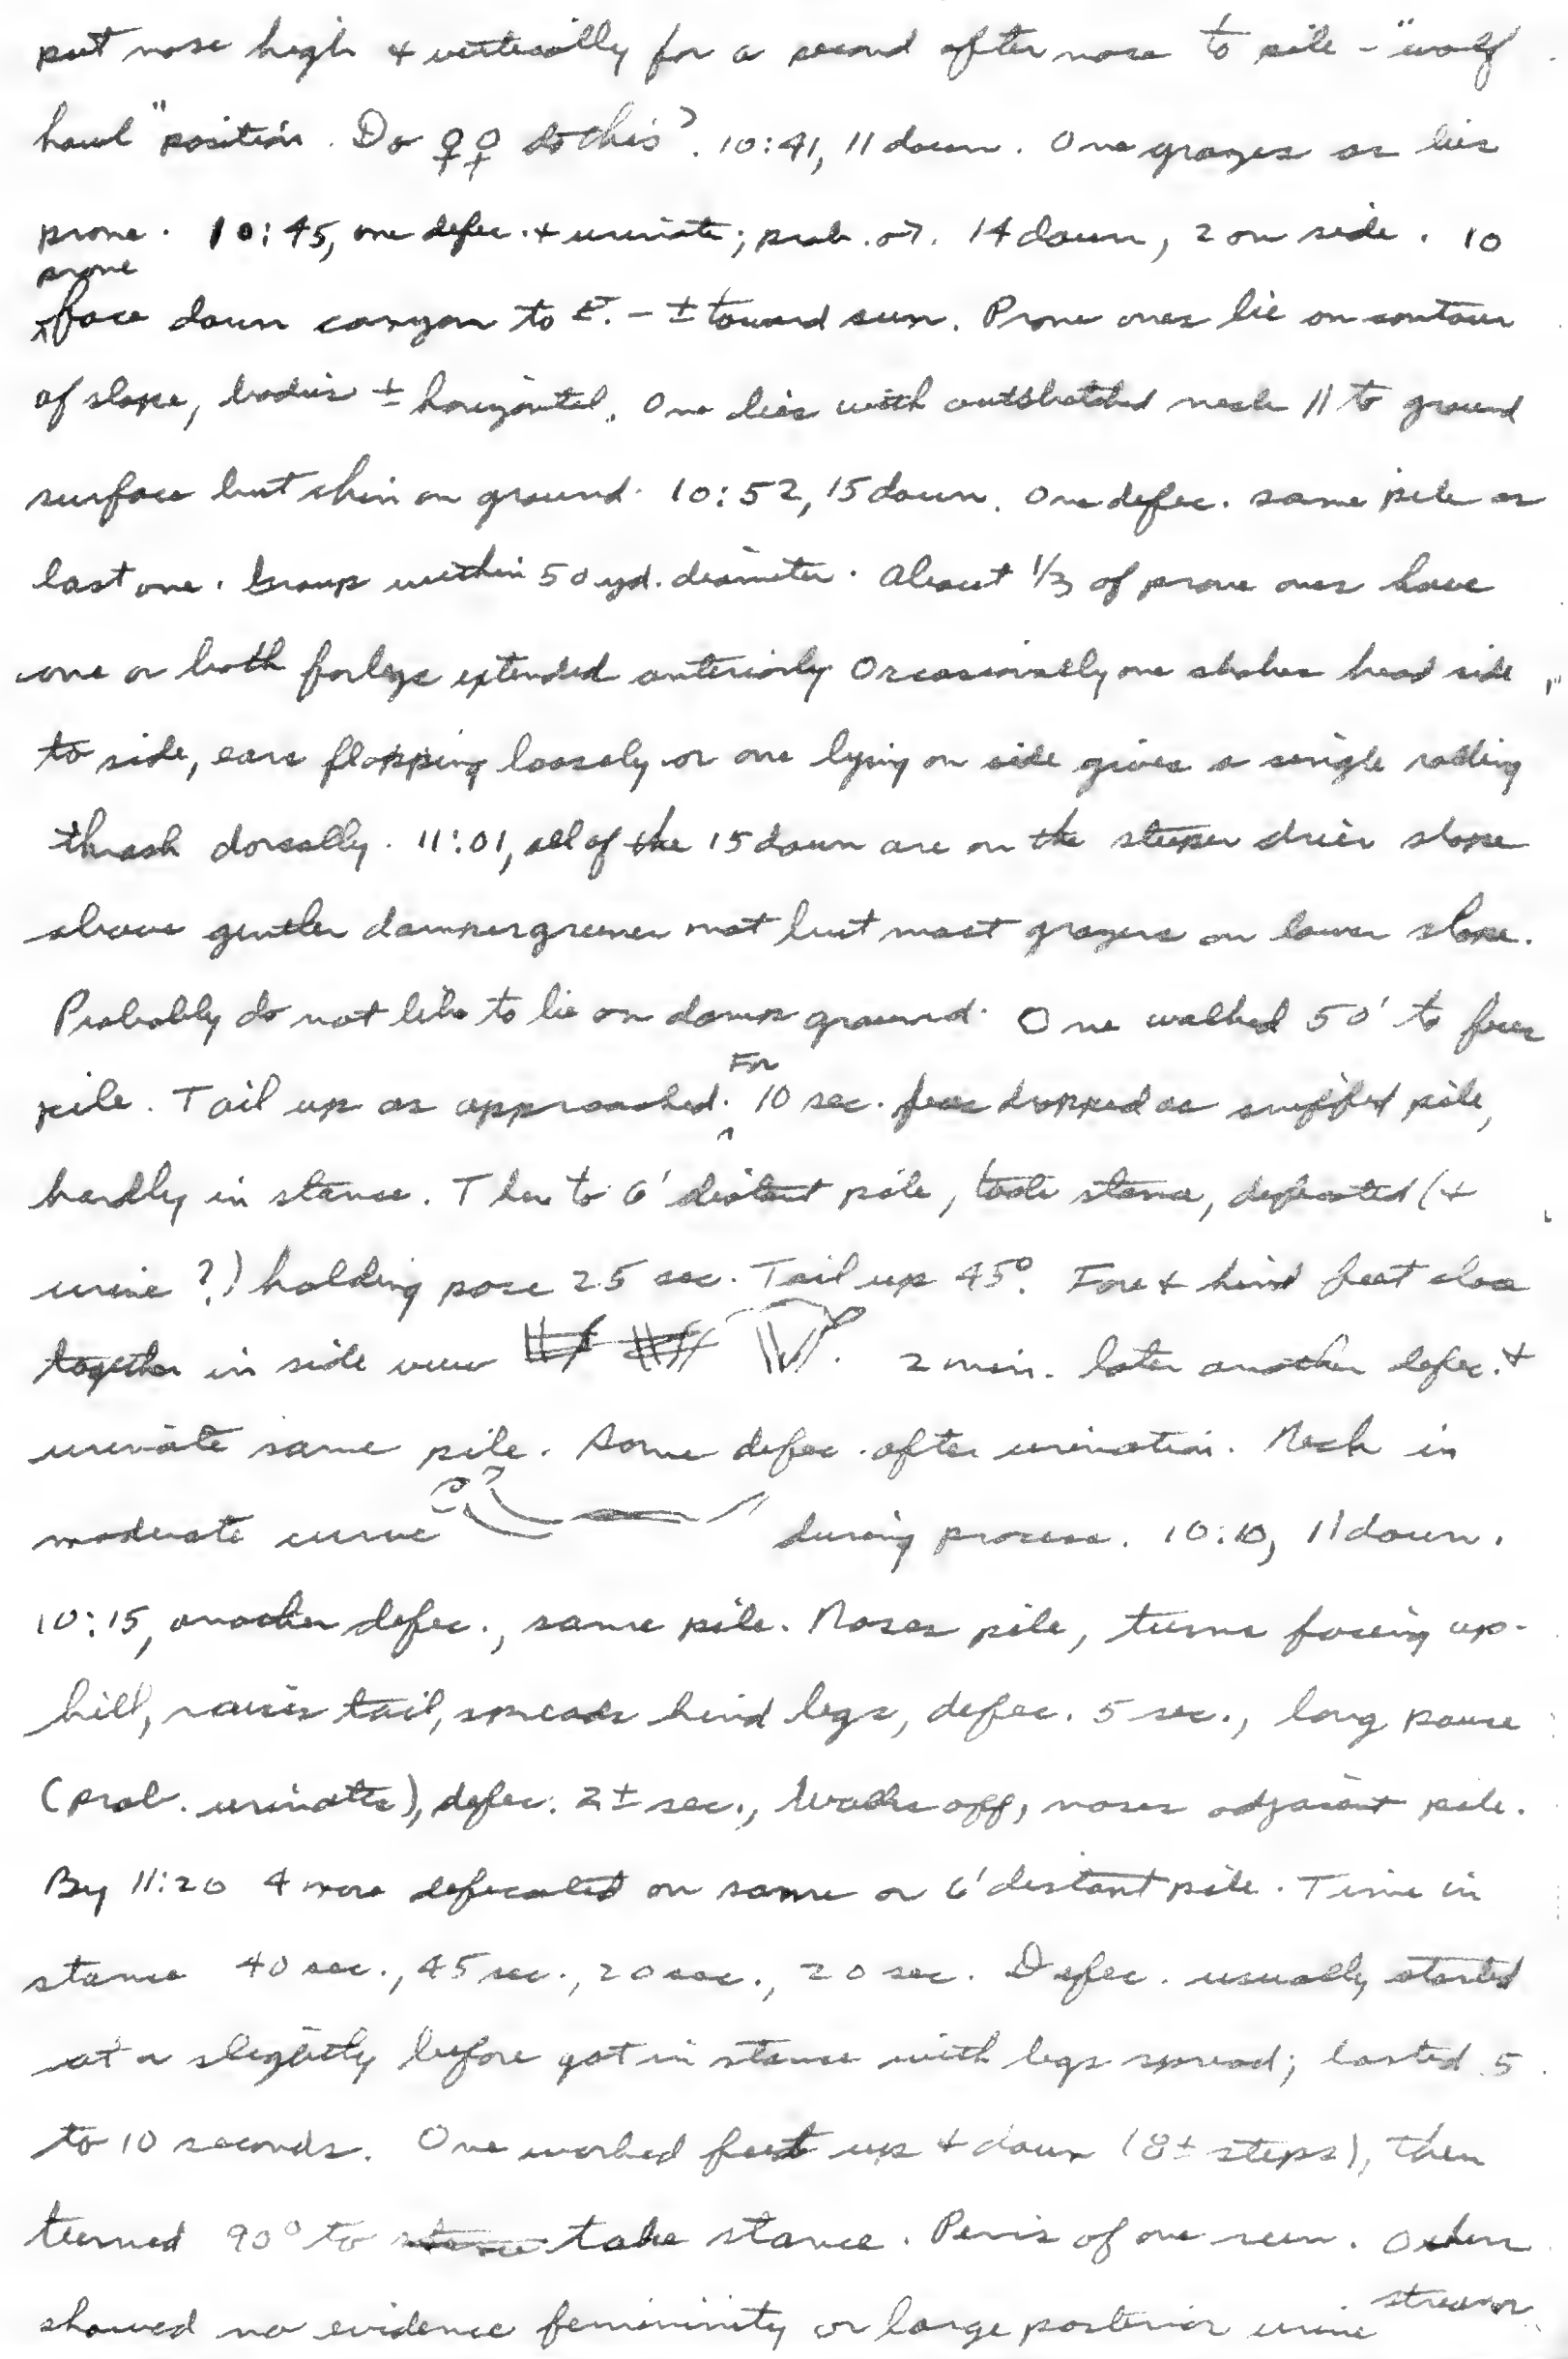 put nose high & vertically for a second after nose to pile - "wolf
howl" position. Do ♀♀ do this? 10:41, 11 down. One grazes as lies
prone. 10:45, one defec. & urinate; prob. ♂. 14 down, 2 on side. 10
prone
face down canyon to E. - ± toward sun. Prone ones lie on contour
of slope, bodies ± horizontal. One lies with outstretched neck || to ground
surface but chin on ground. 10:52, 15 down. One defec. same pile as
last one. Group within 50 yd. diameter. About 1/3 of prone ones have
one or both forlegs extended anteriorly Occasionally one shakes head side
to side, ears flopping loosely or one lying on side gives a single rolling
thrash dorsally. 11:01, all of the 15 down are on the steeper drier slope
above gentler damper greener mat but most grazers on lower slope.
Probably do not like to lie on damp ground. One walked 50' to feces
pile. Tail up as approached. For 10 sec. feces dropped as sniffed pile,
hardly in stance. Then to 6' distant pile, took stance, defecated (&
urine?) holding pose 25 sec. Tail up 45°. Fore & hind feet close
together in side view 2 min. later another defec. &
urinate same pile. Some defec. after urination. Neck in
moderate curve during process. 10:10, 11 down.
10:15, another defec., same pile. Noses pile, turns facing up-
hill, raises tail, spreads hind legs, defec. 5 sec., long pause
(prob. urinates), defec. 2± sec., walks off, noses adjacent pile.
By 11:20 4 more defecated on same or 6' distant pile. Time in
stance 40 sec., 45 sec., 20 sec., 20 sec. Defec. usually started
at or slightly before got in stance with legs spread; lasted 5
to 10 seconds. One worked feet up & down (8± steps), then
turned 90° to take stance. Penis of one seen. Others
showed no evidence femininity or large posterior urine stream